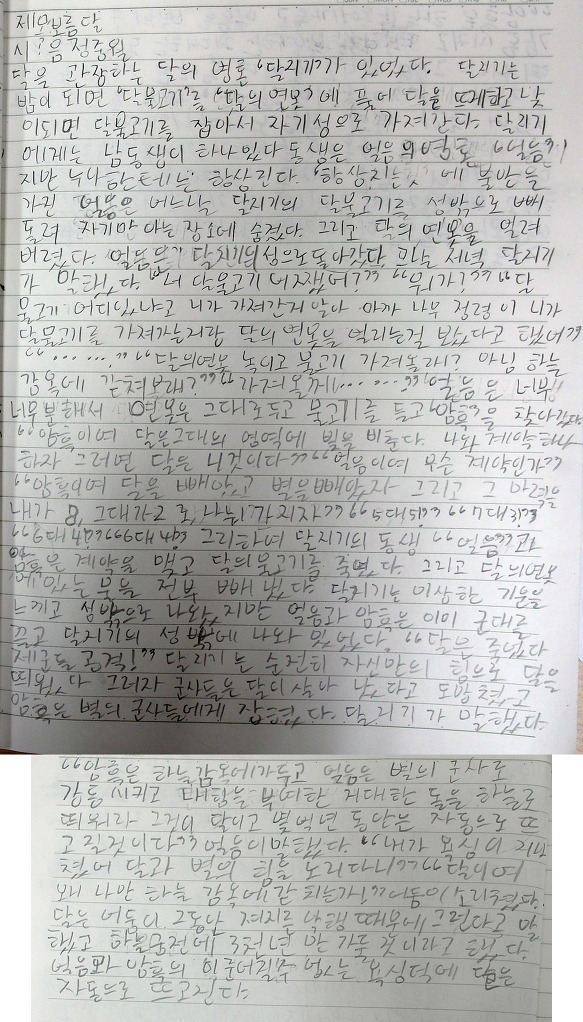 제목보름달
시 : 음 정중월
달을 관장하는 달의 영혼 "달지기"가 있었다. 달지기는
밤이 되면 "달물고기"를 "달의 연못"에 풀어 달을 뜨게하고 낮
이되면 달물고기를 잡아서 자기성으로 가져간다. 달지기
에게는 남동생이 하나있다 동생은 얼음의 영혼 "얼음"
지만 누나한테는 항상진다. "항상지는것"에 불만을
가진 얼음은 어느날 달지기의 달물고기를 성밖으로 빼
돌려 자기만 아는 장소에 숨겼다. 그리고 달의 연못을 얼려
버렸다. 얼음은 달지기의성으로돌아갔다. 그날 저녁 달지기
가 말했다. "너 달물고기 어쨌어?" "뭐가?" "달
물고기 어디있냐고 니가 가져간거 알아 아까 나무 정령이 니가
달물고기를 가져가는거랑 달의 연못을 얼리는걸 봤다고 했어"
"………" "달의연못 녹이고 물고기 가져올래? 아님 하늘
감옥에 갇쳐볼래?" "가져올께………" 얼음은 너무
너무 분해서 연못은 그대로두고 물고기를 들고 "암흑"을 찾아갔다
"암흑이여 달은그대의 영역에 빛을 비춘다. 나와 계약하나
하자 그러면 달은 니것이다" "얼음이여 무슨 계약인가"
"암흑이여 달을 빼앗고 별을빼앗자 그리고 그 마력을
내가 8, 그대가2 로 나눠 가지자" "5대5!" "7대3!"
"6대4!" "6대4!" 그리하여 달지기의 동생 "얼음"과
암흑은 계약을 맺고 달의물고기를 죽였다. 그리고 달의연못
에있는 물을 전부 빼냈다. 달지기는 이상한 기운을
느끼고 성밖으로 나왔지만 얼음과 암흑은 이미 군대를
끌고 달지기의 성밖에 나와 있었다. "달은 죽었다
제군들 공격!" 달지기는 순전히 자신만의 힘으로 달을
띄웠다 그러자 군사들은 달이 살아 났다고 도망쳤고
암흑은 별의 군사들에게 잡혔다. 달지기가 말했다.
"암흑은 하늘감옥에가두고 얼음은 별의 군사로
강등 시키고 마력을 부여한 거대한 돌을 하늘로
띄워라 그것이 달이고 몇억년 동안은 자동으로 뜨
고 질것이다" 얼음이말했다. "내가 욕심이 지나
쳤어 달과 별의 힘을 노리다니" "달이여
왜 나만 하늘 감옥에 갇히는가!" 어둠이 소리쳤다.
달은 어둠이 그동안 저지른 악행 때문에 그런다고 말
했고 하늘궁전에 3천년 만 가둘 것이라고 했다.
얼음과 암흑의 이루어질수 없는 욕심덕에 달은
자동으로 뜨고진다.